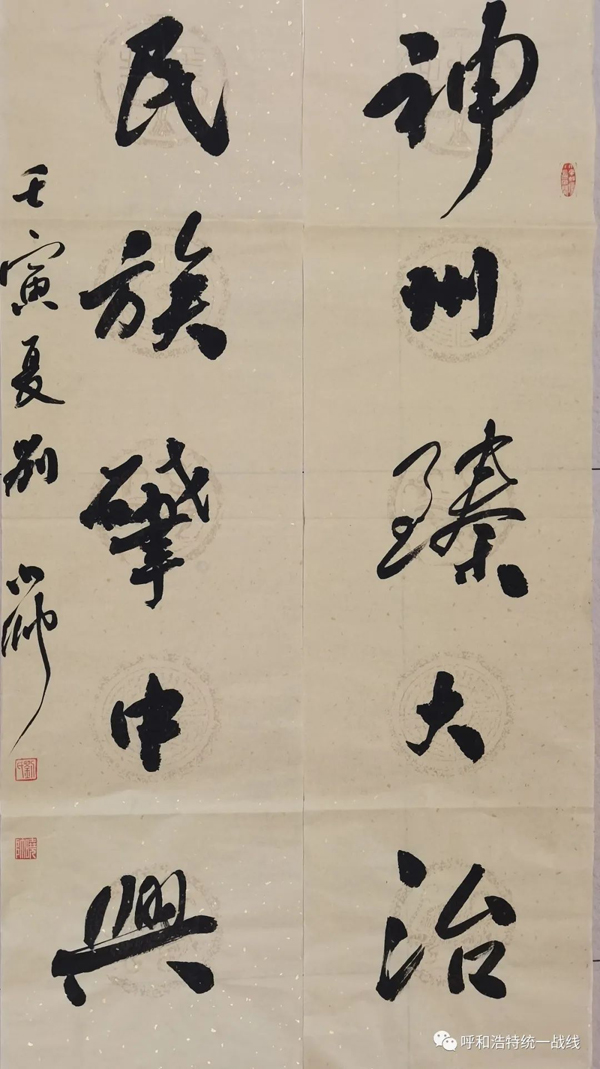 神州臻大治
民族肇中興
壬寅夏劉
呼和浩特统一战线